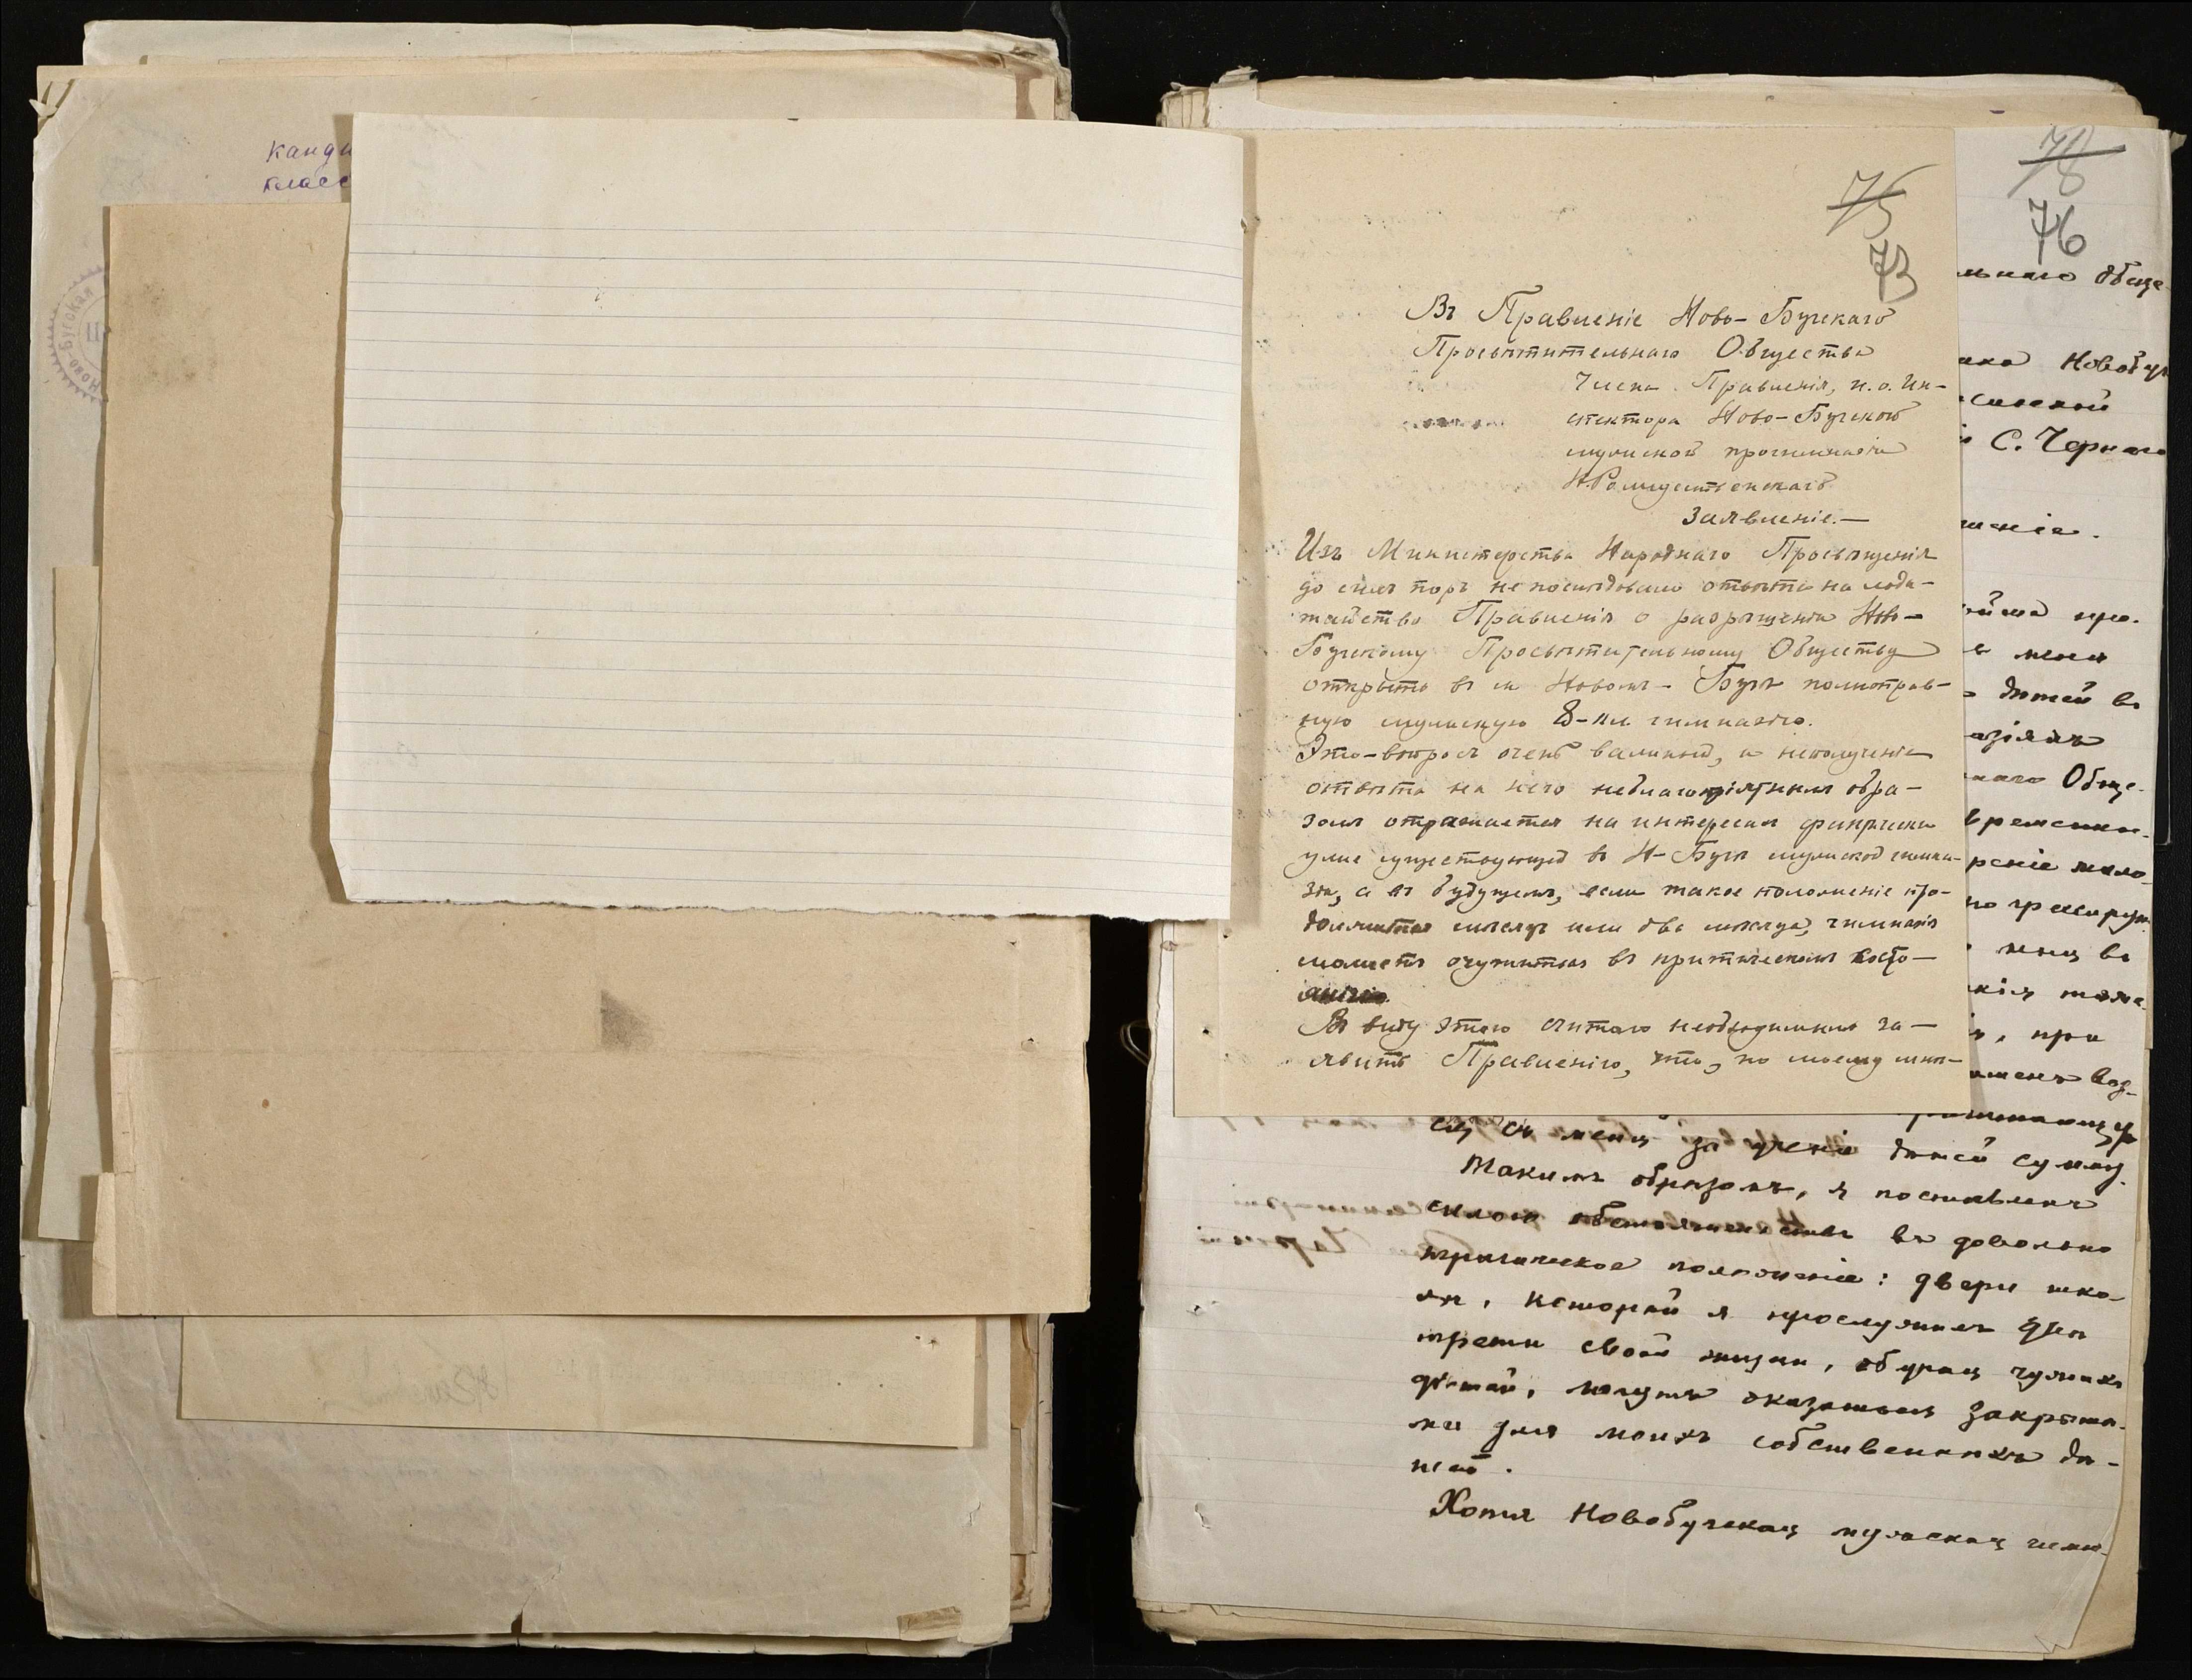 канди
класс
Ново-Бугская
75
73
Въ Правленіе Ново-Бугскаго
Просвѣтительнаго Общества
Члена Правленія, и. о. Ин-
спектора Ново-Бугской
мужской прогимназіи
Н. Рождественскаго
Заявленіе.—
Изъ Министерства Народнаго Просвѣщенія
до сихъ поръ не послѣдовало отвѣта на хода-
тайство Правленія о разрѣшеніи Ново-
Бугскому Просвѣтительному Обществу
открыть въ м. Новомъ-Бугѣ полноправ-
ную мужскую 8-кл. гимназію.
Это-вопросъ очень важный, и неполученіе
отвѣта на него неблагопріятнымъ обра-
зомъ отражается на интересахъ фактически
уже существующей въ Н-Бугѣ мужской гимна-
зіи, а въ будущемъ, если такое положеніе про-
должится мѣсяцъ или два мѣсяца, гимназія
можетъ очутиться въ критическомъ состо-
яніи.
Въ виду этого считаю необходимымъ за-
явить Правленію, что, по моему мнѣ-
78
76
льнаго Обще-
Новобуг
С. Чернаго
шеніе.
меня
дѣтей въ
азіяхъ
наго Обще-
временно-
реніе
въ
при
ся съ меня за ученіе дѣтей сумму.
Такимъ образомъ, я поставленъ
силою обстоятельствъ въ довольно
трагическое положеніе: двери шко-
лы, которой я прослужилъ двѣ
трети своей жизни, обучая чужихъ
дѣтей, могутъ оказаться закрыты-
ми для моихъ собственныхъ дѣ-
тей.
Хотя Новобугская мужская гимн-